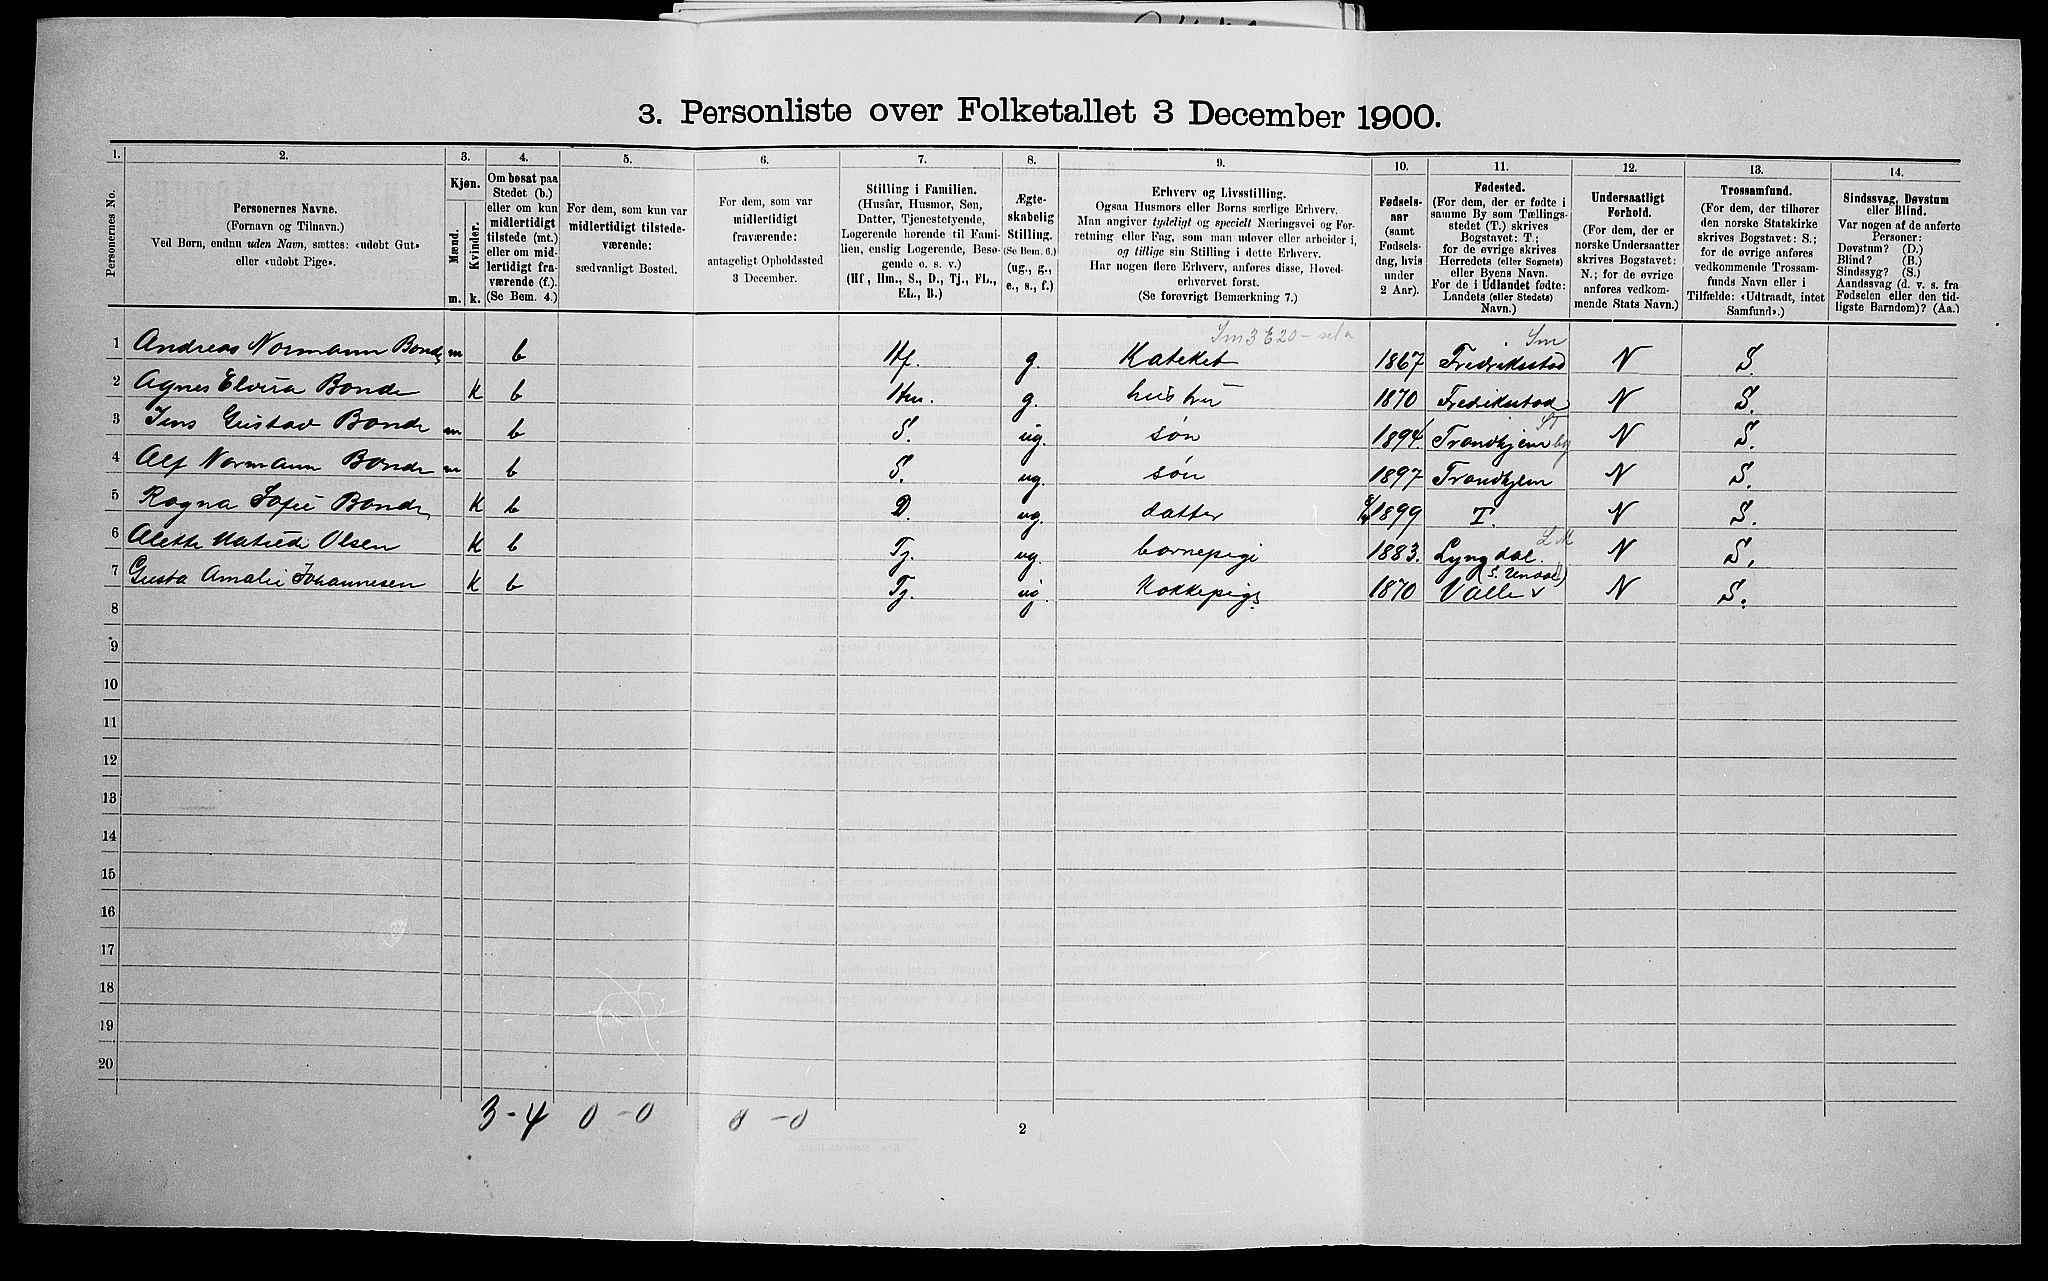 3. Personliste over Folketallet 3 December 1900.
1. 2. 3. 4. 5. 6. 7. 8. 9. 10. 11. 12. 13. 14.
Personernes No.
Personernes Navne.
(Fornavn og Tilnavn.)
Ved Børn, endnu uden Navn, sættes: «udøbt Gut»
eller «udøbt Pige».
Kjøn.
Mænd.
Kvinder.
m. k.
Om bosat paa
Stedet (b.)
eller om kun
midlertidigt
tilstede (mt.)
eller om mid-
lertidigt fra-
værende (f.).
(Se Bem. 4.)
For dem, som kun var
midlertidigt tilstede-
værende:
sædvanligt Bosted.
For dem, som var
midlertidigt
fraværende:
antageligt Opholdssted
3 December.
Stilling i Familien.
(Husfar, Husmor, Søn,
Datter, Tjenestetyende,
Logerende hørende til Fami-
lien, enslig Logerende, Besø-
gende o. s. v.)
(Hf, Hm., S., D., Tj., FL.,
EL., B.)
Ægte-
skabelig
Stilling.
(Se Bem. 6.)
(ug., g.,
e., s., f.)
Erhverv og Livsstilling.
Ogsaa Husmors eller Børns særlige Erhverv.
Man angiver tydeligt og specielt Næringsvei og For-
retning eller Fag, som man udøver eller arbeider i,
og tillige sin Stilling i dette Erhverv.
Har nogen flere Erhverv, anføres disse, Hoved-
erhvervet først.
(Se forøvrigt Bemærkning 7.)
Fødsels-
aar
(samt
Fødsels-
dag, hvis
under
2 Aar).
Fødested.
(For dem, der er fødte i
samme By som Tællings-
stedet (T.) skrives
Bogstavet: T;
for de øvrige skrives
Herredets (eller Sognets)
eller Byens Navn.
For de i Udlandet fødte:
Landets (eller Stedets)
Navn.)
Undersaatligt
Forhold.
(For dem, der er
norske Undersaatter
skrives Bogstavet:
N.; for de øvrige
anføres vedkom-
mende Stats Navn.)
Trossamfund.
(For dem, der tilhører
den norske Statskirke
skrives Bogstavet: S.;
for de øvrige anføres
vedkommende Trossam-
funds Navn eller i
Tilfælde: «Udtraadt, intet
Samfund».)
Sindssvag, Døvstum
eller Blind.
Var nogen af de anførte
Personer:
Døvstum? (D.)
Blind? (B.)
Sindssyg? (S.)
Aandssvag (d. v. s. fra
Fødselen eller den tid-
ligste Barndom)? (Aa.)
Sm
1 Andreas Normann Bonde m b Hf. g. Kateket 1867 Fredriksstad N S.
2 Agnes Elvira Bonde K b Hm. g. hustru 1870 Fredriksstad N S.
ST
3 Jens Gustav Bonde m b S. ug. søn 1894 Trondhjem N S.
4 Alf Normann Bonde m b S. ug. søn 1897 Trondhjem N S.
5 Ragna Sofie Bonde K b D. ug. datter 1899 T. N S.
LM
6 Alette Matilde Olsen K b Tj. ug. barnepige 1883. Lyngdal. N S.
(S. Undal)
7 Gusta Amalie Johannesen K b Tj. ug. Kokkepige 1870 Valle N S.
8
9
10
11
12
13
14
15
16
17
18
19
20
3-4 0-0 0-0
2